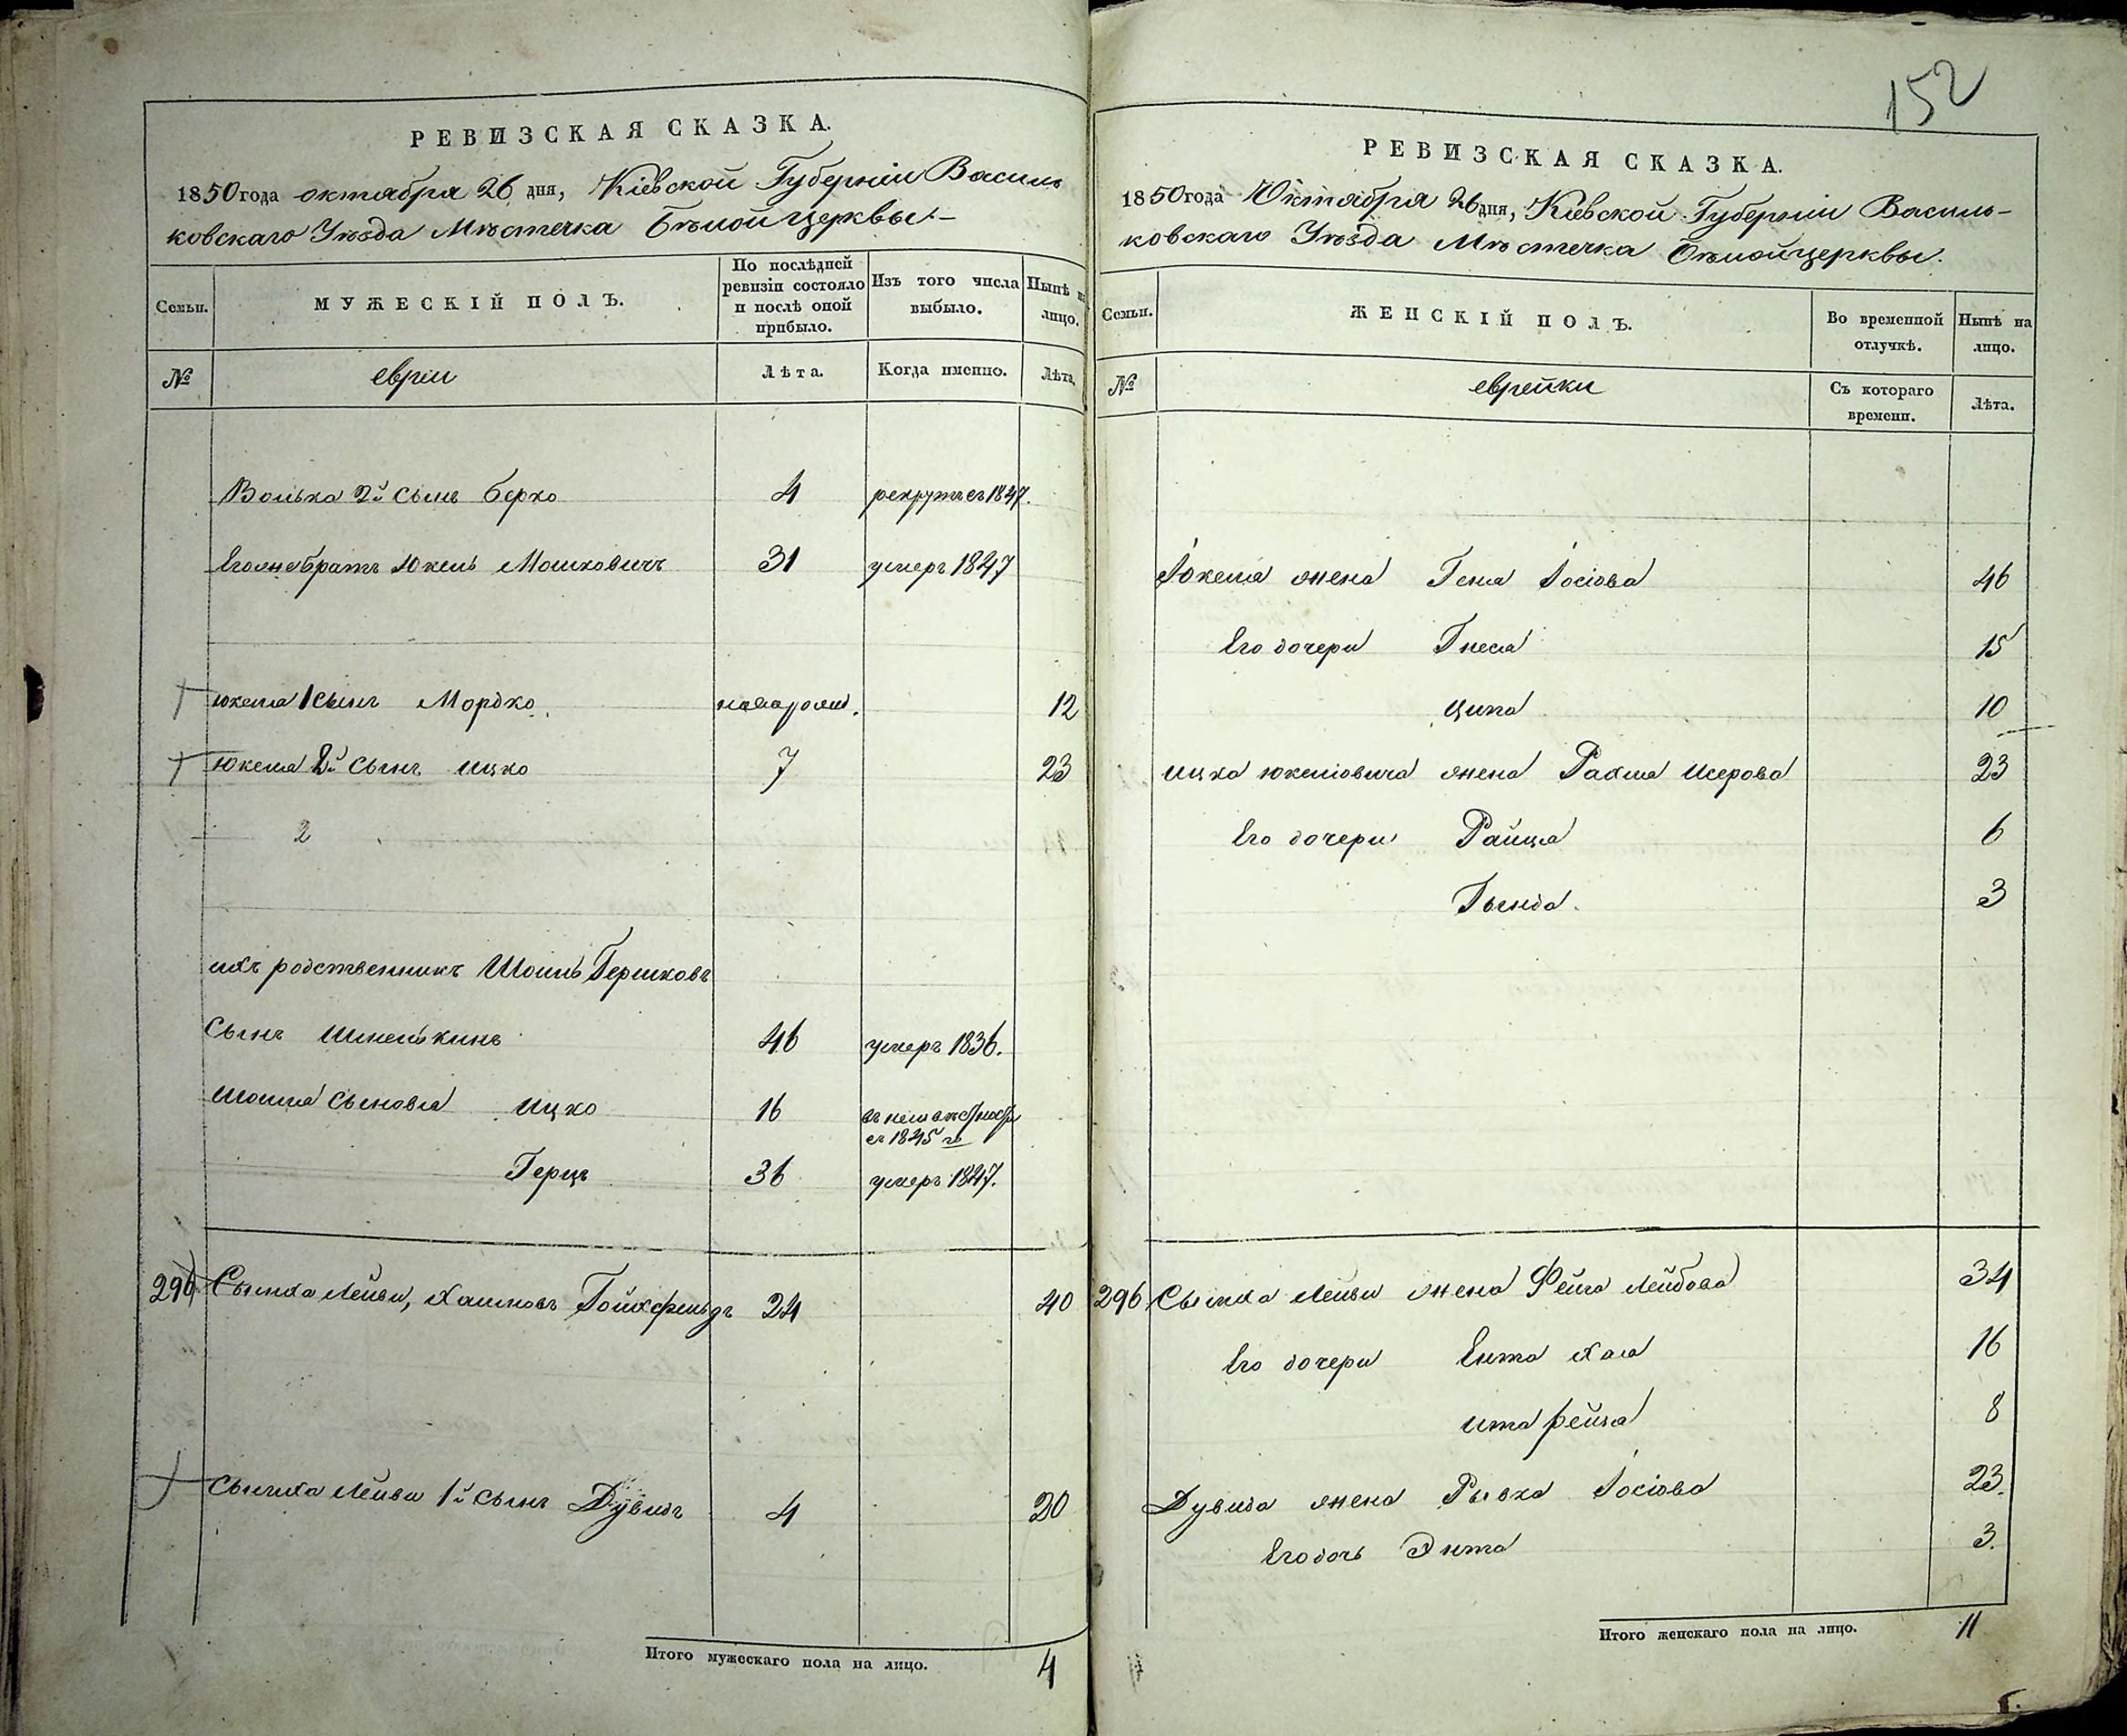 РЕВИЗСКАЯ СКАЗКА.
1850 года октября 26 дня, Кіевской Губерніи Василь
ковскаго Уѣзда Мѣстечка Бѣлой Церквы.
Семьи.
МУЖЕСКІЙ ПОЛЪ.
По послѣдней
ревизіи состояло
и послѣ оной
прибыло.
Изъ того числа
выбыло.
Нынѣ на
лицо.
№
евреи
Лѣта.
Когда именно.
Лѣта.
Волька 2й сынъ Берко 4 рекрутъ съ 1847.
Его же братъ Юкель Мошковичъ 31 умеръ 1847
Юкеля 1 сынъ Мордко новорожд. 12
Юкеля 2й сынъ Ицко 7 23
2
ихъ родственникъ Шоилъ Гершковъ
сынъ 46 умеръ 1836.
Шоиля сыновья Ицко 16
съ 1845 го
Герць 36 умеръ 1847.
296 Сымха Лейзи, Хаимовъ Гойхфельдъ 24 40
Сымха Лейзи 1й сынъ Дувидъ 4 20
Итого мужескаго пола на лицо. 4
152
РЕВИЗСКАЯ СКАЗКА.
1850 года Октября 26 дня, Кіевской Губерніи Василь-
ковскаго Уѣзда Мѣстечка Бѣлойцерквы.
Семьи.
ЖЕНСКІЙ ПОЛЪ.
Во временной
отлучкѣ.
Нынѣ на
лицо.
№
еврейки
Съ котораго
времени.
Лѣта.
Юкеля жена Геня Іосіова 46
Его дочери Гнеся 15
Ципа 10
Ицка Юкеліовича жена Рахля Исерова 23
Его дочери Райца 6
Гинда. 3
296 Сымха Лейзи жена Фейга Лейбова 34
Его дочери Ента Хая 16
Ита рейза 8
Дувида жена Рывка Іосіова 23.
Его дочь Энта 3.
Итого женскаго пола на лицо. 11